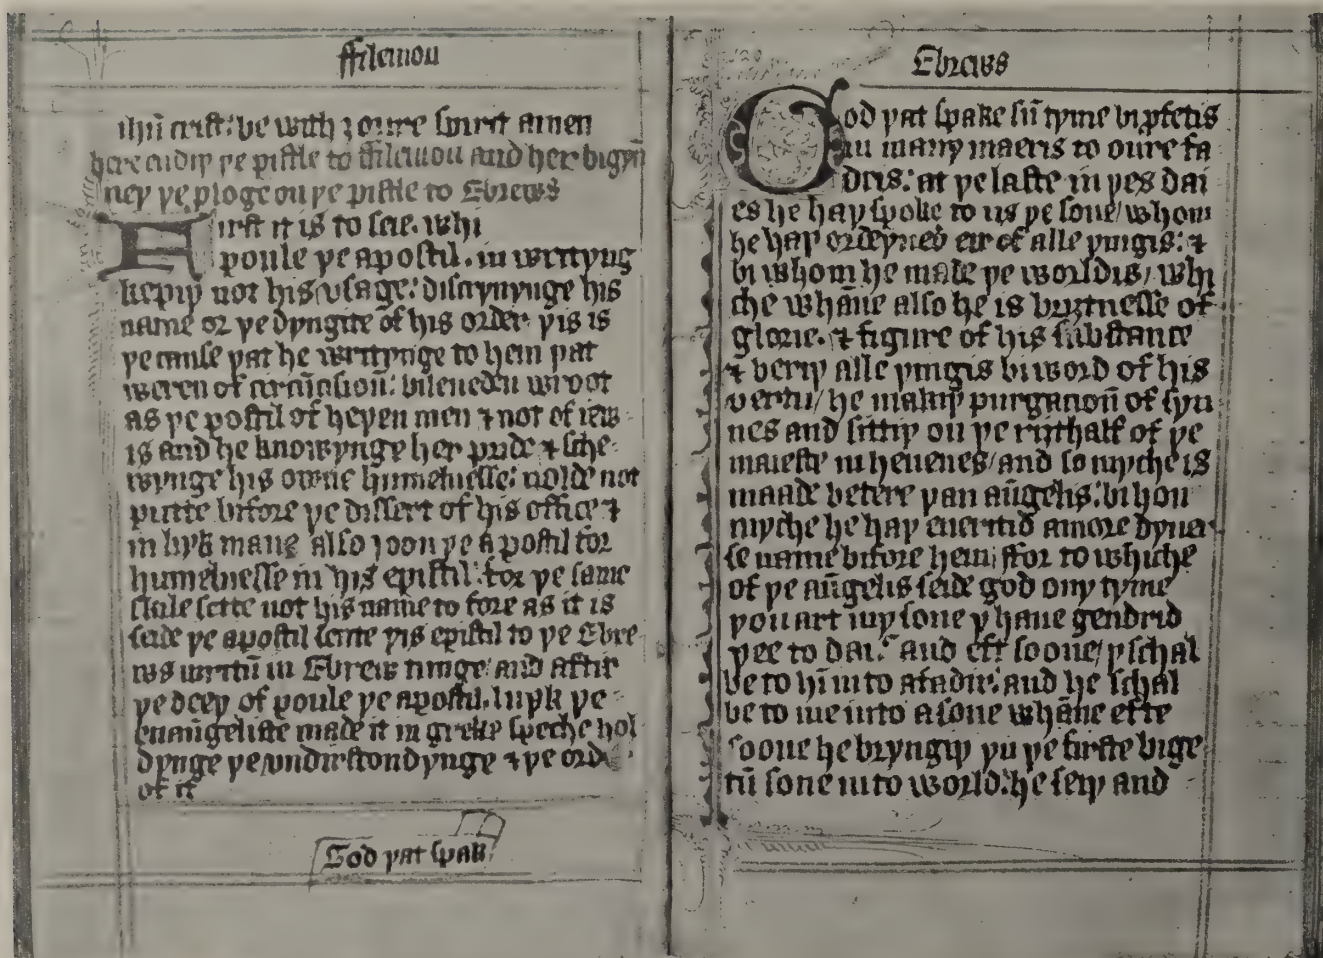 ffilemon
ihū crist: be with ȝoure spirit amen
here endiþ þe pistle to ffilemon and her bigyn
neþ þe ploge on þe pistle to Ebrews
First it is to seie. whi
poule þe apostil. in writyng
kepiþ not his vsage: discryuynge his
name or þe dyngite of his order þis is
þe cause þat he writynge to hem þat
weren of circūcisioū: bileueden wroot
as þe postil of heþen men ⁊ not of iew
is and he knowynge her pride ⁊ sche
wynge his owne humelnesse: nolde not
putte bifore þe dissert of his office ⁊
in lyk maner also joon þe apostil for
humelnesse in his epistil: for þe same
skile sette not his name to fore as it is
seide þe apostil sente þis epistil to þe Ebre
ws writū in Ebrew tunge: and aftir
þe deeþ of poule þe apostil. luyk þe
euāngeliste made it in greke speche hol
dynge þe vndirstondynge ⁊ þe ordr
of it
God þat spak
Ebrews
God þat spake sū tyme bi pfetis
in many maeris to oure fa
dris: at þe laste in þes dai
es he haþ spoke to us þe sone/ whom
he haþ ordeyned eir of alle þingis: ⁊
bi whom he made þe worldis/ whi
che whāne also he is bryȝtnesse of
glorie. ⁊ figure of his substance
⁊ beriþ alle þingis bi word of his
vertu/ he makiþ purgacioū of syn
nes and sittiþ on þe riȝthalf of þe
maieste in heuenes/ and so myche is
maade betere þan aūgelis: bi hou
myche he haþ eneritid a more dyna
se name bifore hem/ ffor to whiche
of þe aūgelis seide god ony tyme
þou art my sone y haue gendrid
þee to dai: and eft soone/ y schal
be to hī in to a fadir: and he schal
be to me into a sone whāne efte
soone he bryngiþ yn þe firste bige
tū sone in to world: he seiþ and